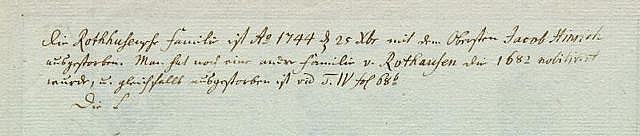 Die Rothhusensche Familie ist Aō 1744 d 25 Xbr mit dem Obristen Jacob Hinrich
ausgestorben. Man hat noch eine andre Familie v. Rothausen die 1682 nobilitiret
wurde, u. gleichfalls ausgestorben ist vid T. IV fol 68b
Die